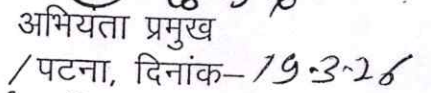 अभियंता प्रमुख
/पटना, दिनांक– 19.3.26